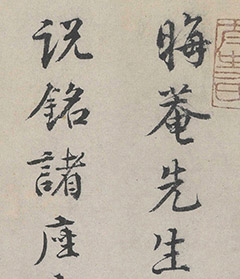 晦菴先生
说銘諸座